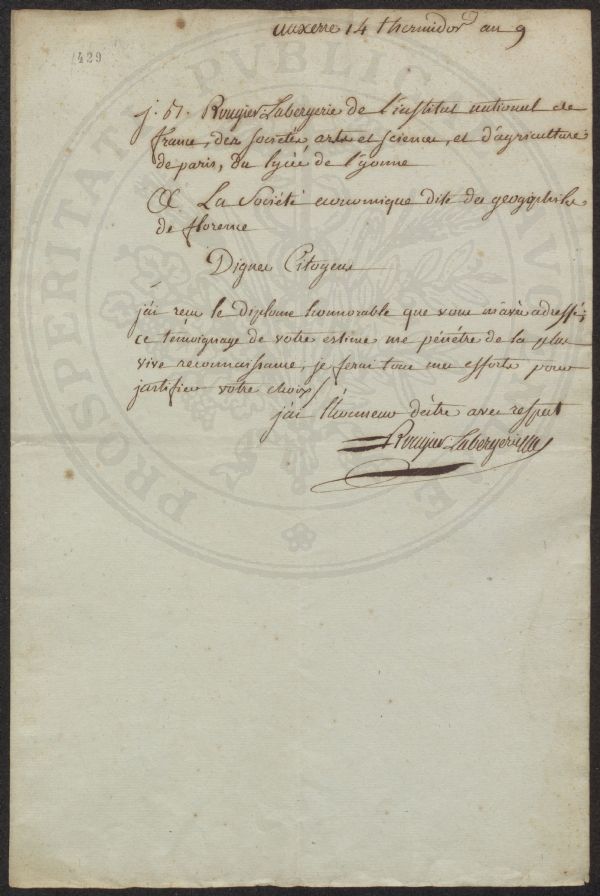 auxerre 14 thermidor an 9
1429
j. B. Rougier-Labergerie de l'institut national de
france, des societés arts et sciences, et d'agriculture
de paris, du lycée de l'yonne
A La Société economique dite des georgophiles
de florence
Dignes Citoyens
j'ai reçu le diplome honnorable que vous m'avés adressé;
ce témoignage de votre estime me pénétre de la plus
vive reconnaissance, je ferai tous mes efforts pour
justifier votre choix/
j'ai l'honneur d'être avec respect
Rougier-Labergerie
PROSPERITATI PUBLICAE